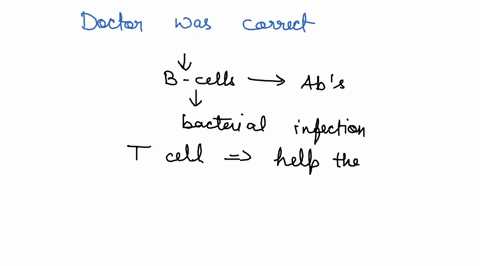 Doctor was correct
B-cells → Ab's
bacterial infection
T cell ⇒ help the